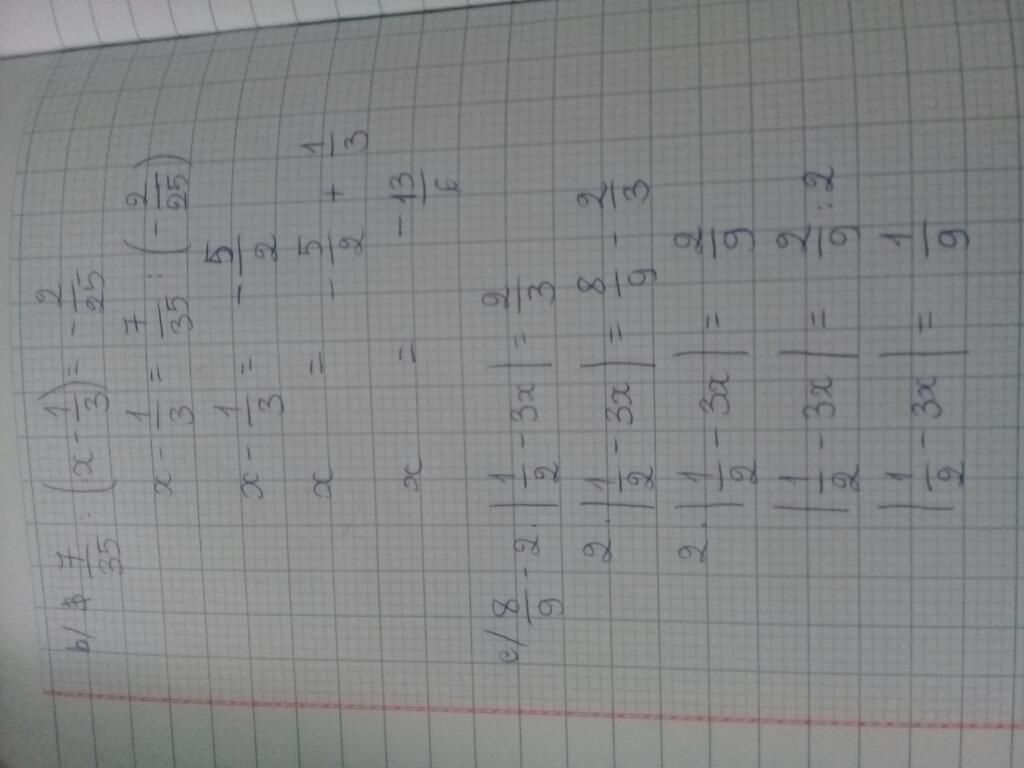 b/ 7/35 : (x - 1/3) = -2/25
x - 1/3 = 7/35 : (-2/25)
x - 1/3 = -5/2
x = -5/2 + 1/3
x = -13/6
c/ 8/9 - 2.|1/2 - 3x| = 2/3
2.|1/2 - 3x| = 8/9 - 2/3
2.|1/2 - 3x| = 2/9
|1/2 - 3x| = 2/9 : 2
|1/2 - 3x| = 1/9